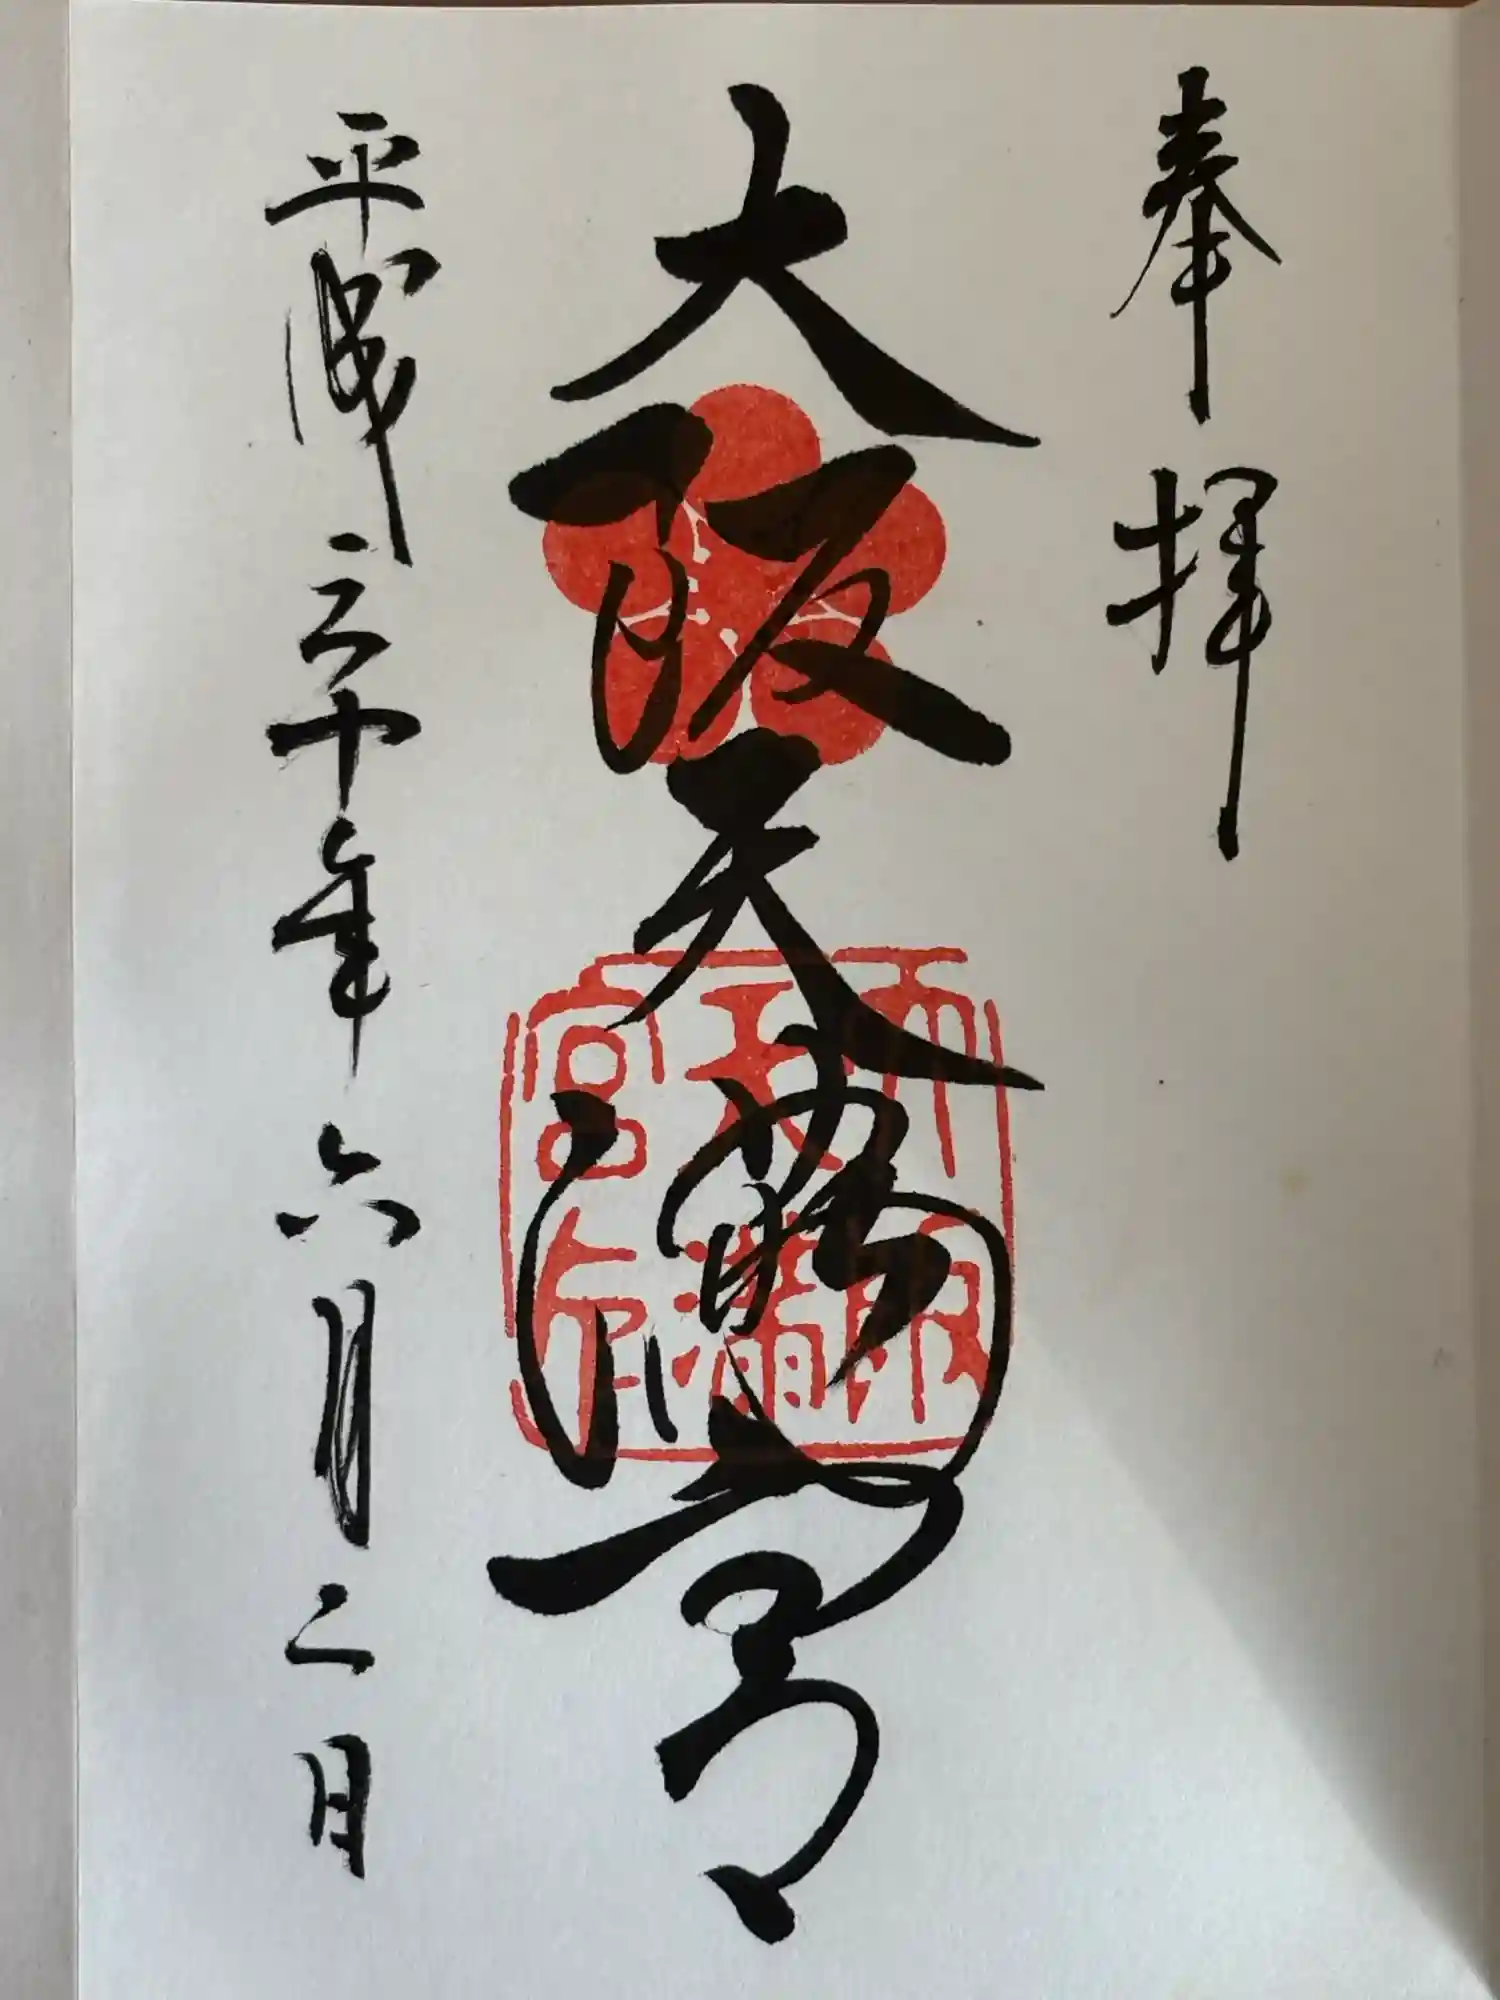 奉拝
大阪天満宮
大阪天満宮印
平成三十年六月二日